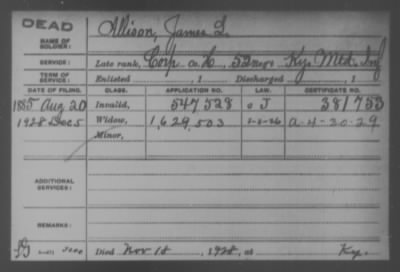 DEAD
NAME OF SOLDIER: Allison, James L.
SERVICE: Late rank, Corp. Co. H, 52 Regt Ky. Mtd. Inf
TERM OF SERVICE: Enlisted , 1 Discharged , 1
DATE OF FILING. CLASS. APPLICATION NO. LAW. CERTIFICATE NO.
1885 Aug 20 Invalid, 547528 J 381753
1928 Dec 5 Widow, 1,629,503 A-4-30-29
Minor,
ADDITIONAL SERVICES:
REMARKS:
Died Nov 18, 1928, at Ky.